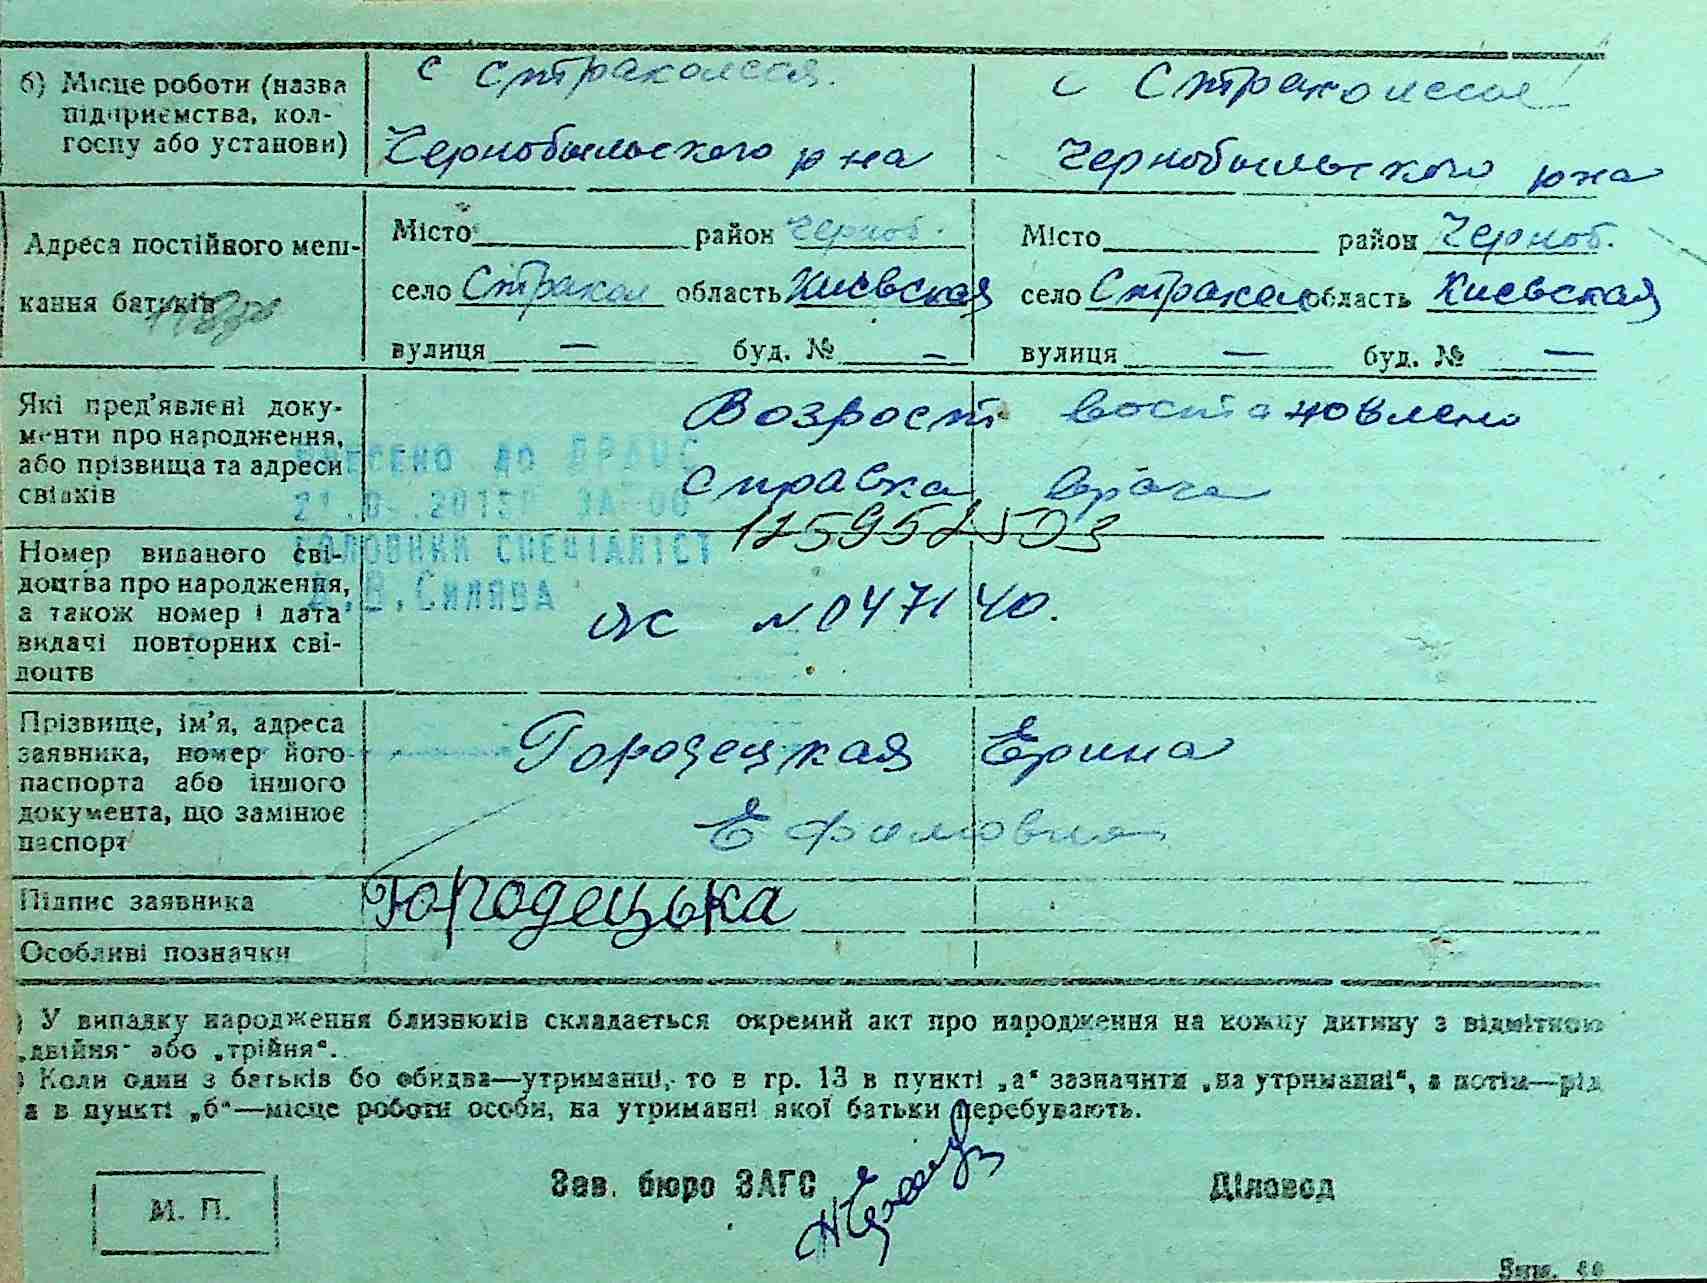 б) Місце роботи (назва підприємства, колгоспу або установи)
с Страколесся.
Чернобыльского р на
с Страколесся
Чернобыльского р на
Адреса постійного мешкання батьків
Місто район Черноб.
село Стракол область Киевская
вулиця — буд. № —
Місто район Черноб.
село Стракол область Киевская
вулиця — буд. № —
Які пред'явлені документи про народження, або прізвища та адреси свідків
Возраст востановлено
справка врача
ВНЕСЕНО ДО ДРАЦС
ГОЛОВНИЙ СПЕЦІАЛІСТ
Номер виданого свідоцтва про народження, а також номер і дата видачі повторних свідоцтв
№ 047140.
Прізвище, ім'я, адреса заявника, номер його паспорта або іншого документа, що замінює паспорт
Городецкая Ерина
Ефимовна
Підпис заявника
Городецька
Особливі позначки
) У випадку народження близнюків складається окремий акт про народження на кожну дитину з відміткою
„двійня" або „трійня".
) Коли один з батьків бо обидва—утриманці, то в гр. 13 в пункті „а" зазначити „на утриманні", а потім—рід
а в пункті „б"—місце роботи особи, на утриманні якої батьки перебувають.
М. П.
Зав. бюро ЗАГС
Діловод